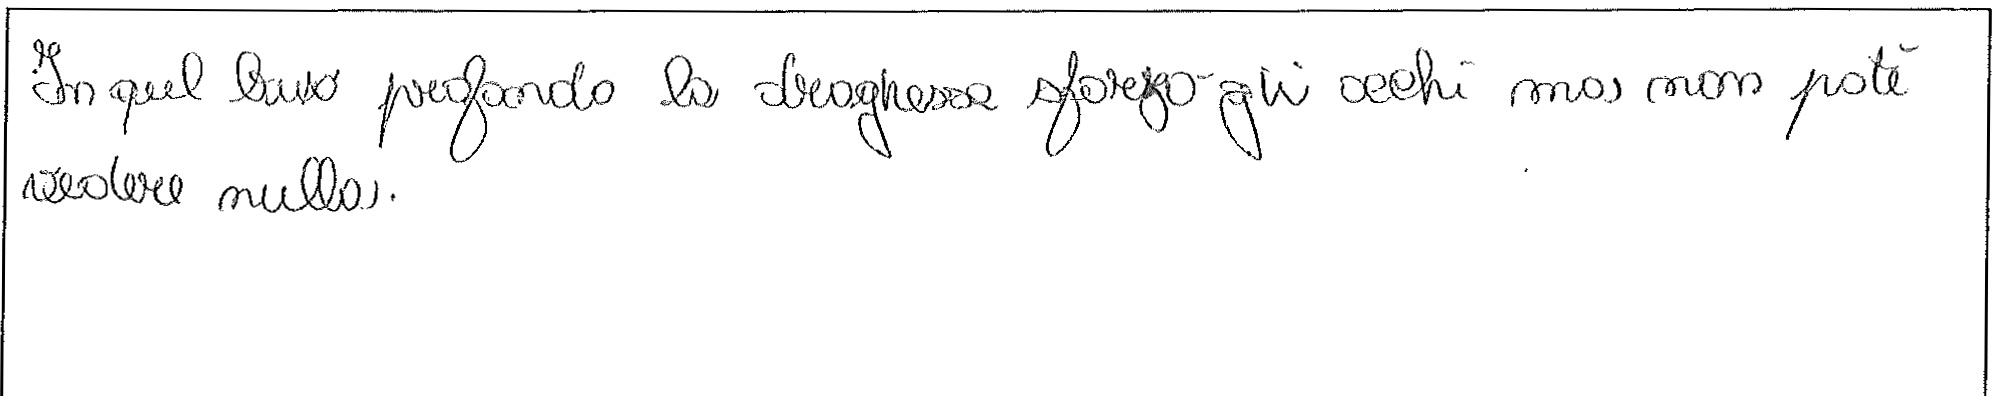 In quel buio profondo la draghessa sforzò gli occhi ma non potè
vedere nulla.